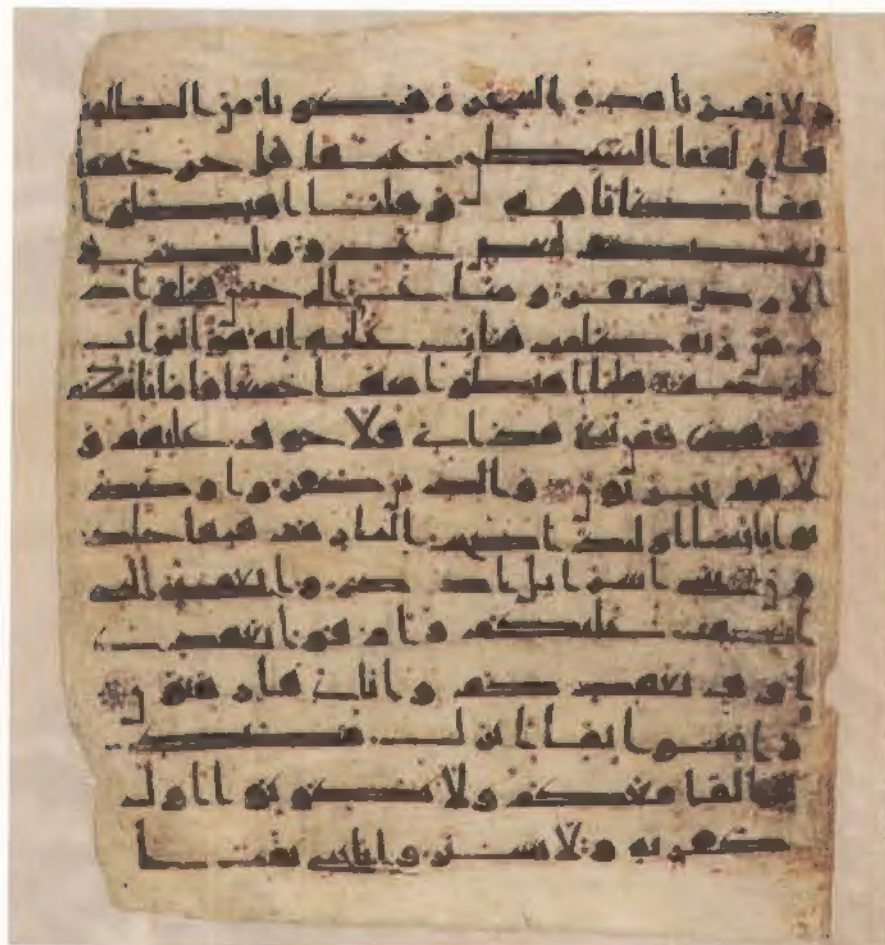 ولا تقربا هذه الشجرة فتكونا من الظلمين
فازلهما الشيطن عنها فاخرجهما
مما كانا فيه وقلنا اهبطوا
بعضكم لبعض عدو ولكم في
الارض مستقر ومتع الى حين فتلقى اد
م من ربه كلمت فتاب عليه انه هو التواب
الرحيم قلنا اهبطوا منها جميعا فاما ياتينكم
منى هدى فمن تبع هداى فلا خوف عليهم و
لا هم يحزنون والذين كفروا وكذبو
ا بايتنا اولئك اصحب النار هم فيها خلد
ون يبنى اسرايل اذكروا نعمتى التى
انعمت عليكم واوفوا بعهدى
اوف بعهدكم واياى فارهبون
وامنوا بما انزلت مصدقا
لما معكم ولا تكونوا اول
كافر به ولا تشتروا بايتى ثمنا